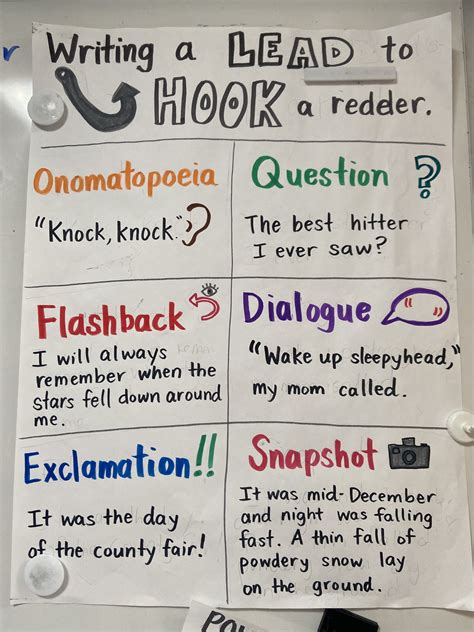 Writing a LEAD to
HOOK a reader.
Onomatopoeia
"Knock, knock."
Question
The best hitter
I ever saw?
Flashback
I will always
remember when the
stars fell down around
me.
Dialogue
"Wake up sleepyhead,"
my mom called.
Exclamation!!
It was the day
of the county fair!
Snapshot
It was mid-December
and night was falling
fast. A thin fall of
powdery snow lay
on the ground.